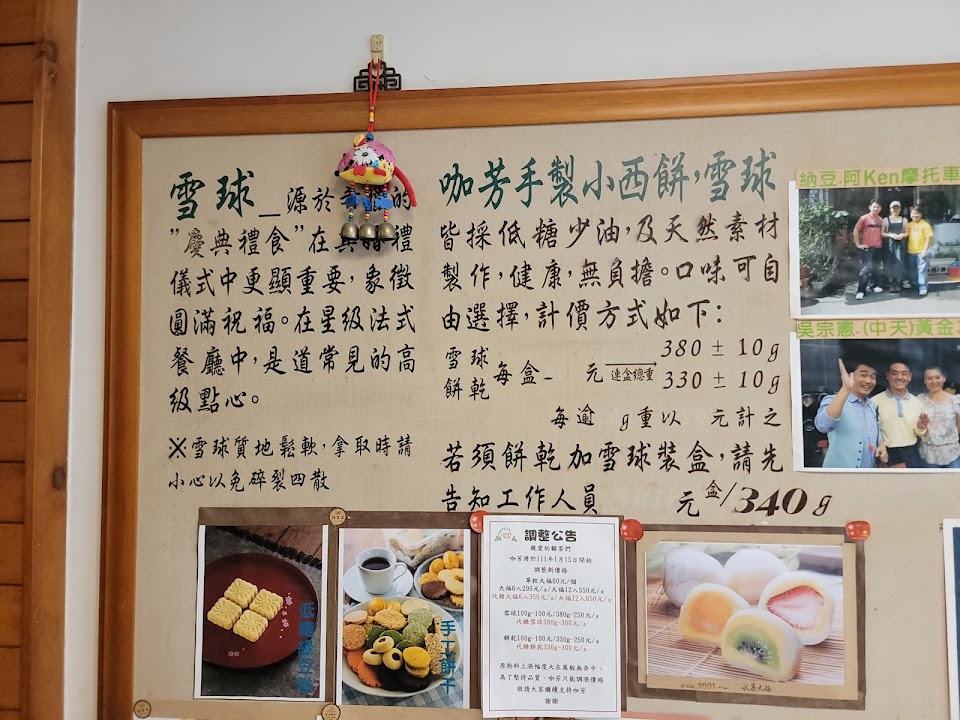 雪球_源於 的
"慶典禮食"在 禮
儀式中更顯重要,象徵
圓滿祝福。在星級法式
餐廳中,是道常見的高
級點心。
※雪球質地鬆軟,拿取時請
小心以免碎裂四散
咖芳手製小西餅,雪球
皆採低糖少油,及天然素材
製作,健康,無負擔。口味可自
由選擇,計價方式如下:
雪球 380±10g
餅乾 每盒- 元 連盒總重 330±10g
每逾 g重以 元計之
若須餅乾加雪球裝盒,請先
告知工作人員 元盒/340g
納豆.阿Ken摩托車
吳宗憲.(中天)黃金
手工餅干
調整公告
親愛的顧客們
咖芳將於111年1月15日開始
調整新價格
單粒大福60元/個
大福6入290元/ /大福12入550元/
代糖大福6入350元/ /大福12入650元/
雪球100g-100元/380g-250元/
代糖雪球380g-300元/
餅乾100g-100元/330g-250元/
代糖餅乾330g-300元/
原物料上漲幅度大在萬般無奈中,
為了堅持品質、咖芳只能調漲價格
敬請大家繼續支持咖芳
謝謝
since 2001~ 水菓大福